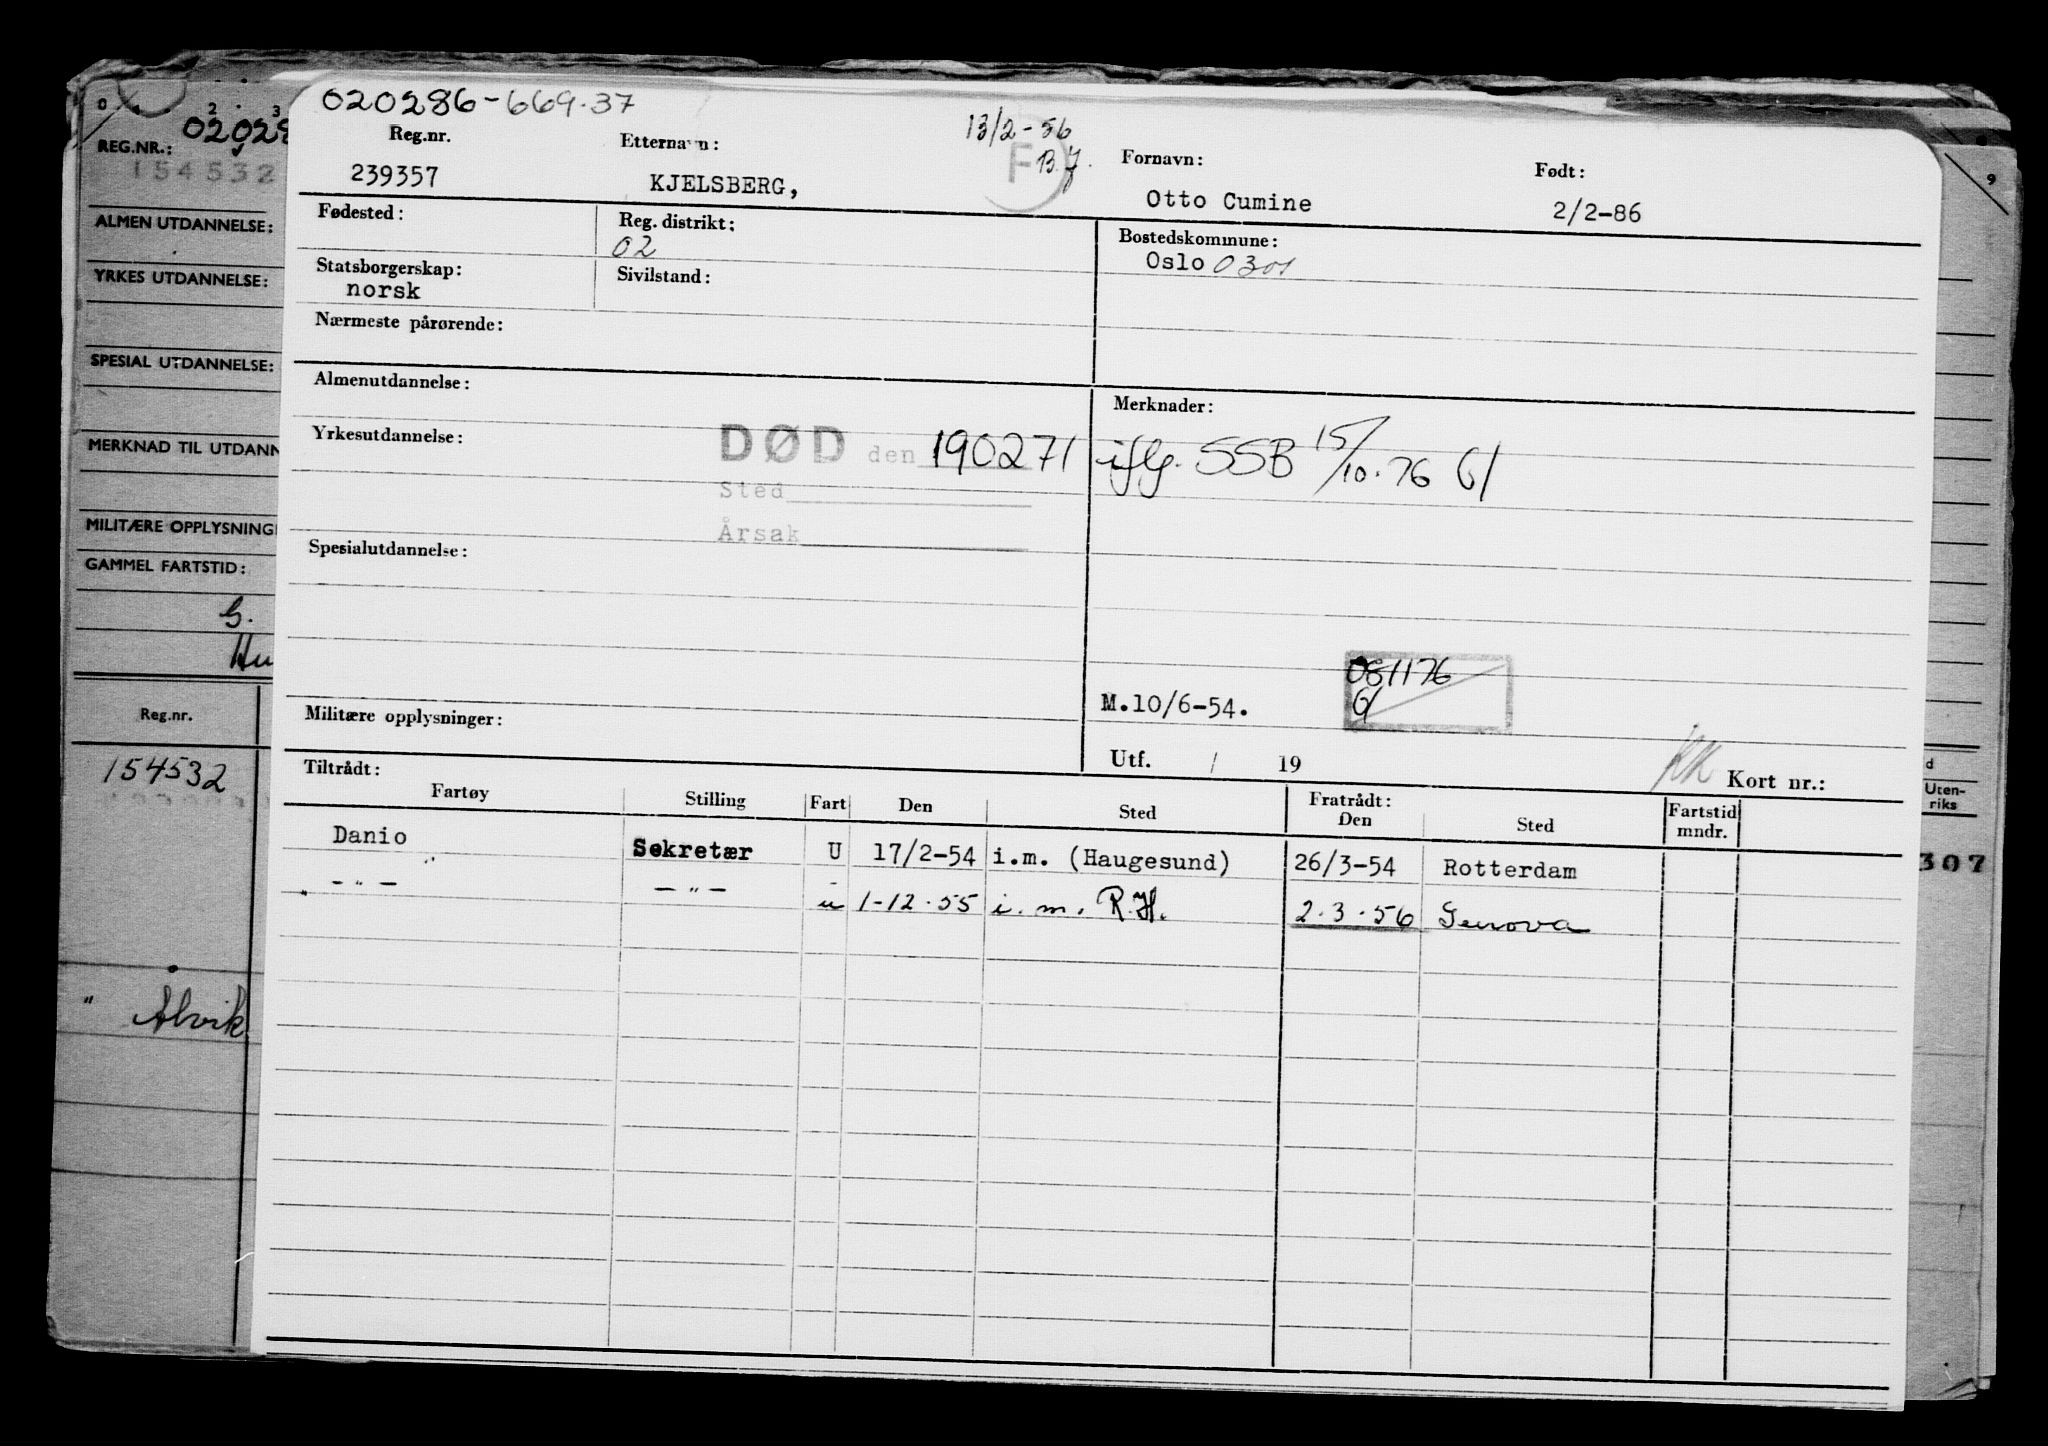 020286-669.37
13/2-56
B.J.
F
Reg.nr. Etternavn: Fornavn: Født:
239357 KJELSBERG, Otto Cumine 2/2-86
Fødested: Reg. distrikt: Bostedskommune:
02 Oslo 0301
Statsborgerskap: Sivilstand:
norsk
Nærmeste pårørende:
Almenutdannelse: Merknader:
Yrkesutdannelse: DØD den 190271 iflg. SSB 15/10.76
Sted
Årsak
Spesialutdannelse:
081176
M.10/6-54.
Militære opplysninger:
Utf. / 19 Kort nr.:
Tiltrådt: Fratrådt:
Fartøy Stilling Fart Den Sted Den Sted Fartstid mndr.
Danio Sekretær U 17/2-54 i.m. (Haugesund) 26/3-54 Rotterdam
" - " - - " - u 1-12.55 i.m. R.H. 2.3.56 Genova
0 2 3
REG.NR.: 02028
154532
ALMEN UTDANNELSE:
YRKES UTDANNELSE:
SPESIAL UTDANNELSE:
MERKNAD TIL UTDANN
MILITÆRE OPPLYSNING
GAMMEL FARTSTID:
G.
Hu
Reg.nr.
154532
" Alvik
9
d
Uten-
riks
307